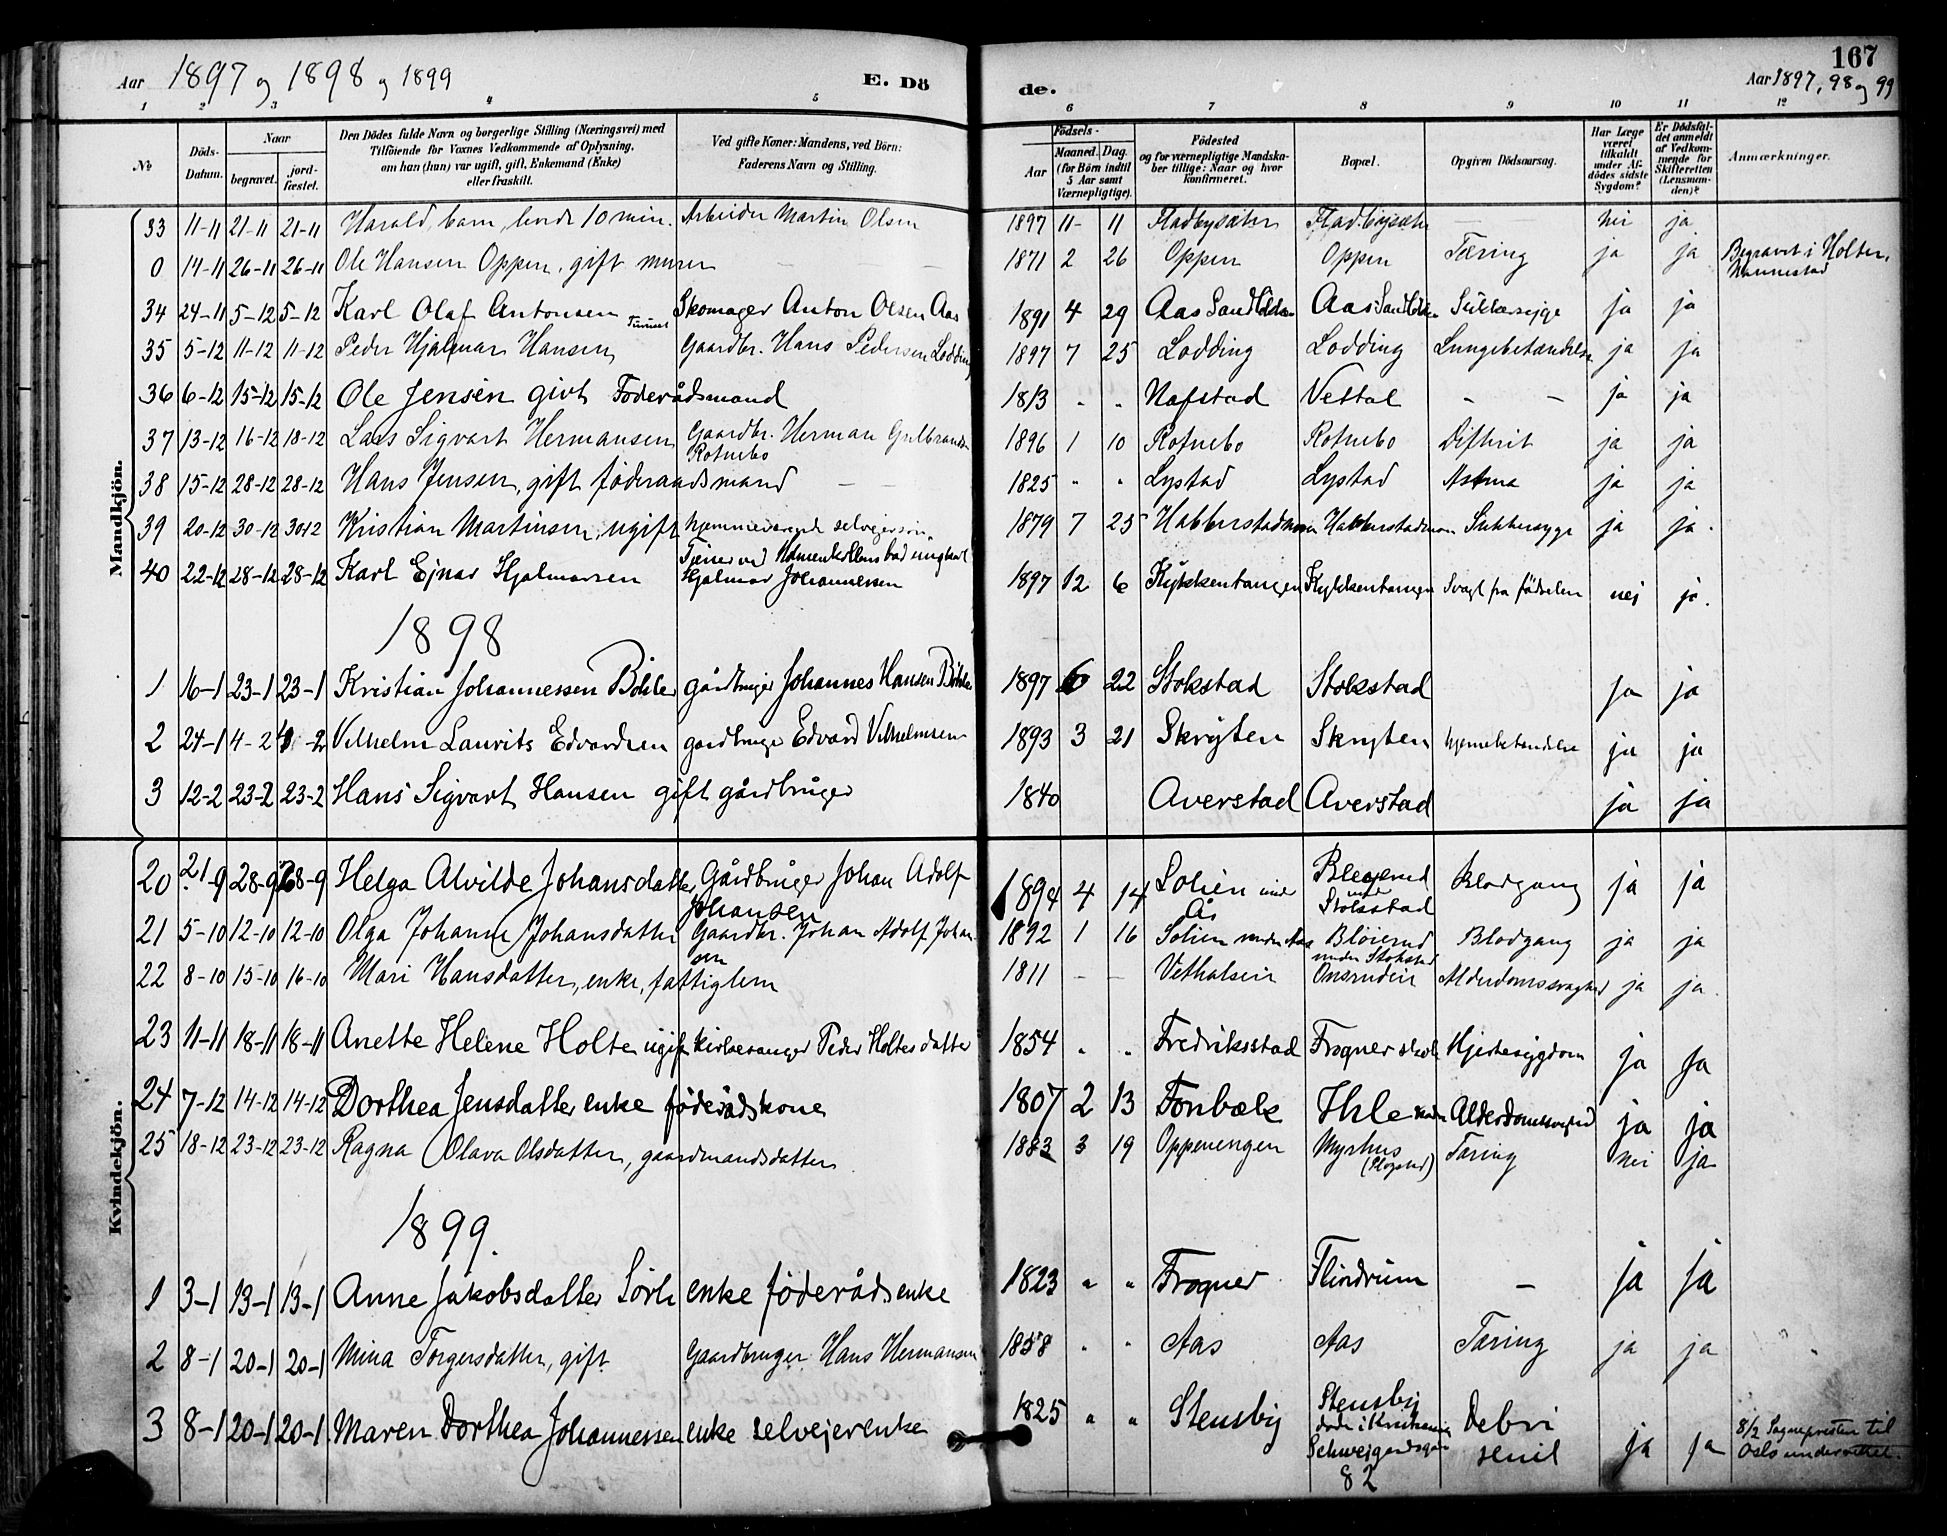 Aar 1897 og 1898 og 1899 E. Dö
de. Aar 1897, 98 og 99
167
1 2 3 4 5 6 7 8 9 10 11 12
№
Döds-Datum.
Naar
begravet. jord-fæstet.
Den Dödes fulde Navn og borgerlige Stilling (Næringsvei) med
Tilföiende for Voxnes Vedkommende af Oplysning,
om han (hun) var ugift, gift, Enkemand (Enke)
eller fraskilt.
Ved gifte Koner: Mandens, ved Börn:
Faderens Navn og Stilling.
Födsels-
Aar Maaned. Dag.
(for Börn indtil
5 Aar samt
Værnepligtige).
Födested
og for værnepligtige Mandska-
ber tillige: Naar og hvor
konfirmeret.
Bopæl.
Opgiven Dödsaarsag.
Har Læge
været
tilkaldt
under Af-
dödes sidste
Sygdom?
Er Dödsfal-
det anmeldt
af Vedkom-
mende for
Skifteretten
(Lensman-
den)?
Anmærkninger.
Mandkjön.
33 11-11 21-11 21-11 Harald, barn, levde 10 min. Arbeider Martin Olsen 1897 11- 11 Fladbysæter Fladbysæter — nei ja
0 14-11 26-11 26-11 Ole Hansen Oppen, gift murer — — — 1871 2 26 Oppen Oppen Tæring ja ja Begravet i Holter,
Nannestad
34 24-11 5-12 5-12 Karl Olaf Antonsen Skomager Anton Olsen Aas 1891 4 29 Aas Aas Sukkersyge ja ja
35 5-12 11-12 11-12 Peder Hjalmar Hansen Gaardbr. Hans Pedersen Lodding 1897 7 25 Lodding Lodding Lungebetændelse ja ja
36 6-12 15-12 15-12 Ole Jensen givt Föderådsmand 1813 " " Nafstad Vettal — — ja ja
37 13-12 16-12 18-12 Lars Sigvart Hermansen Gaardbr. Herman Gulbrandsen 1896 1 10 Rotnebo Rotnebo Difterit ja ja
Rotnebo
38 15-12 28-12 28-12 Hans Jensen, gift föderaadsmand — — 1825 " " Lystad Lystad Astma ja ja
39 20-12 30-12 30-12 Kristian Martinsen, ugift hjemmeværende selveiersön. 1879 7 25 Sukkersyge ja ja.
40 22-12 28-12 28-12 Karl Ejnar Hjalmarsen Tjener ved Holmenkollens bad ungkarl
Hjalmar Johannessen 1897 12 6 Kykkentangen Kykkentangen Svagt fra födselen nej ja.
1898
1 16-1 23-1 23-1 Kristian Johannessen Böhler gårdbruger Johannes Hansen Böhler 1897 6 22 Stokstad Stokstad ja ja
2 24-1 4-2 4-2 Vilhelm Laurits Edvardsen gardbruger Edvard Vilhelmsen 1893 3 21 Skryten Skryten hjernebetændelse ja ja
3 12-2 23-2 23-2 Hans Sigvart Hansen gift gårdbruger 1840 Averstad Averstad ja ja
Kvindekjön.
20 21-9 28-9 28-9 Helga Alvilde Johansdatter Gårdbruger Johan Adolf 1894 4 14 Solien under Bleyerud Blodgang ja ja
Johansen Ås under
Stokstad
21 5-10 12-10 12-10 Olga Johanne Johansdatter Gaardbr. Johan Adolf Johan- 1892 1 16 Solien under Aas Blöierud Blodgang ja ja
sen under Stokstad
22 8-10 15-10 16-10 Mari Hansdatter, enke, fattiglem 1811 — — Onsrudeie Alderdomssvaghed ja ja.
23 11-11 18-11 18-11 Anette Helene Holter ugift kirkesanger Peder Holters datter 1854 " " Fredriksstad Frogner skole Hjertesygdom ja ja
24 7-12 14-12 14-12 Dorthea Jensdatter enke föderådskone 1807 2 13 Fonbæk Ihle Alderdomssvaghed ja ja
25 18-12 23-12 23-12 Ragna Olava Olsdatter, gaardmandsdatter 1883 3 19 Oppenengen Myrhus Tæring nei ja
1899.
1 3-1 13-1 13-1 Anne Jakobsdatter Sörli enke föderådsenke 1823 " " Frogner Flindrum — ja ja
2 8-1 20-1 20-1 Mina Torgersdatter, gift Gaardbruger Hans Hermansen 1858 " " Aas Aas Tæring ja ja
3 8-1 20-1 20-1 Maren Dorthea Johannessen enke selvejerenke 1825 " " Stensby Stensby Debri ja ja 8/2 Sognepresten til
döde i Kristiania senil Oslo underrettet.
Schweigaardsgade
82